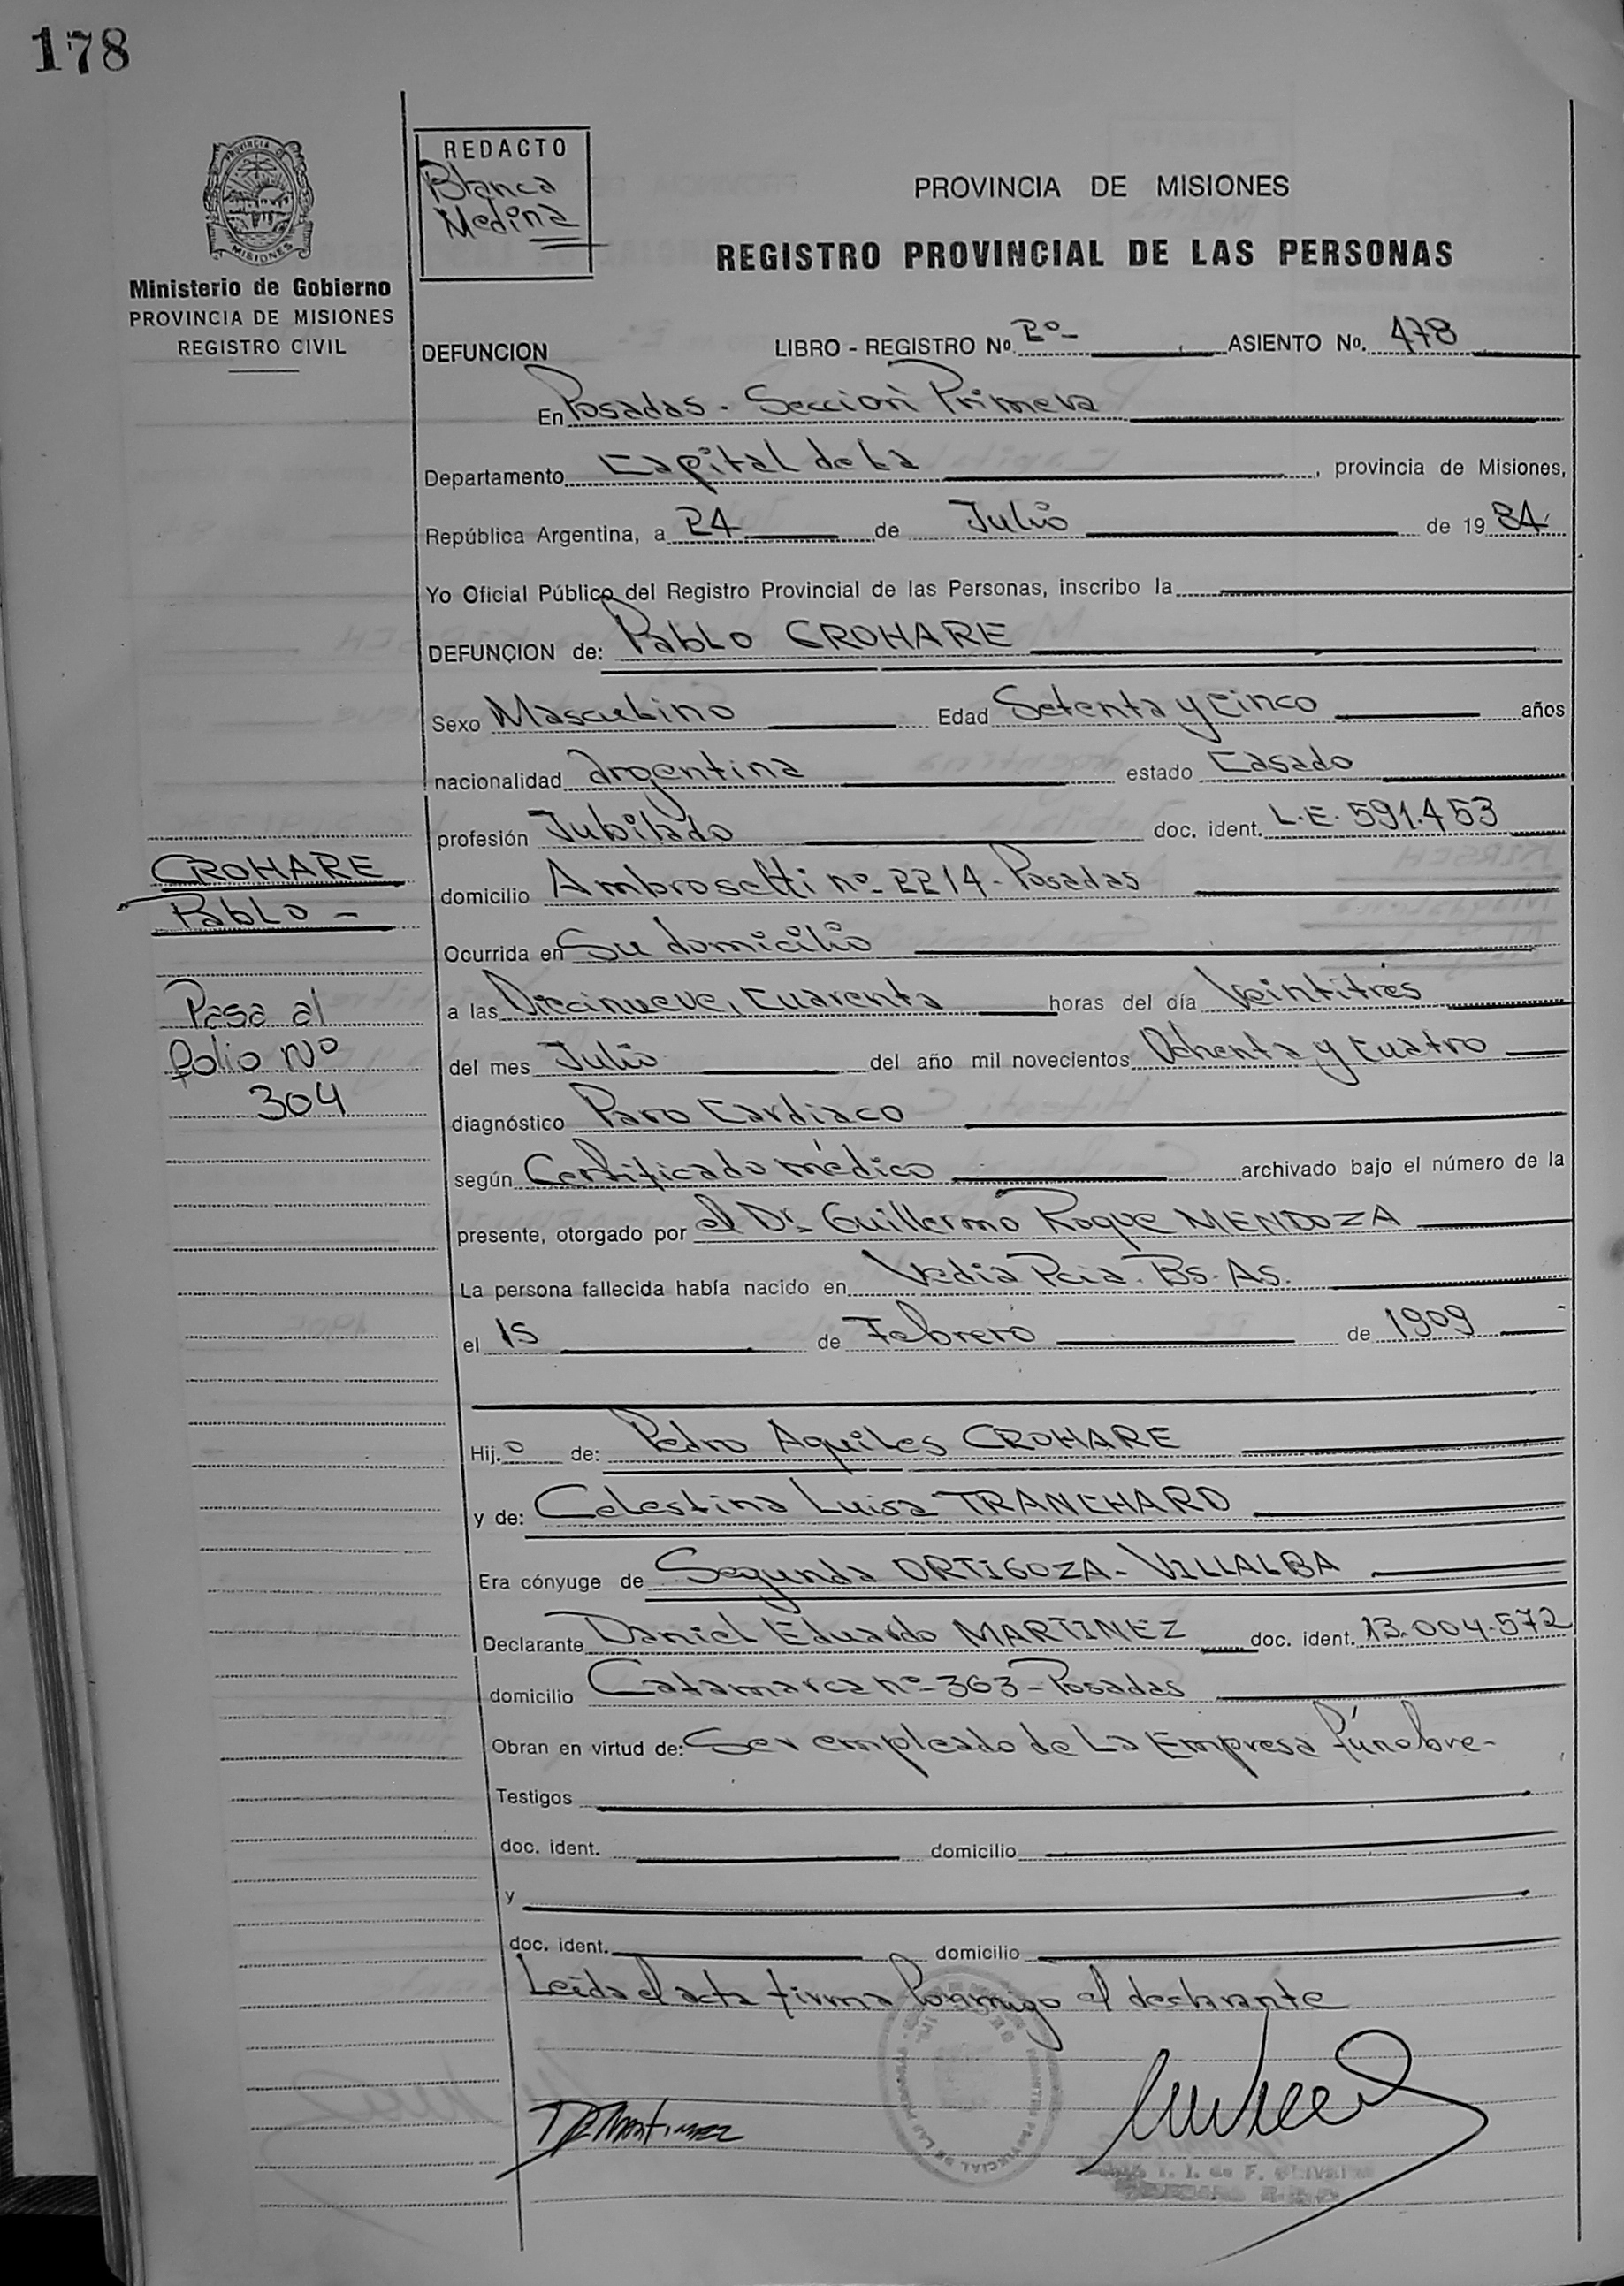 178
REDACTO
Blanca
Medina
PROVINCIA DE MISIONES
REGISTRO PROVINCIAL DE LAS PERSONAS
PROVINCIA DE
MISIONES
Ministerio de Gobierno
PROVINCIA DE MISIONES
REGISTRO CIVIL
DEFUNCION LIBRO - REGISTRO Nº 2º- ASIENTO Nº. 478
En Posadas - Sección Primera
Departamento Capital de La , provincia de Misiones,
República Argentina, a 24 de Julio de 19 84
Yo Oficial Público del Registro Provincial de las Personas, inscribo la
DEFUNCION de: Pablo CROHARE
Sexo Masculino Edad Setenta y Cinco años
nacionalidad argentina estado Casado
profesión Jubilado doc. ident. L.E. 591.453
CROHARE
Pablo -
domicilio Ambrosetti nº 2214 - Posadas
Ocurrida en Su domicilio
Pasa al
folio Nº
304
a las Diecinueve, Cuarenta horas del día Veintitrés
del mes Julio del año mil novecientos Ochenta y Cuatro
diagnóstico Paro Cardiaco
según Certificado médico archivado bajo el número de la
presente, otorgado por el Dr. Guillermo Roque MENDOZA
La persona fallecida había nacido en Vedia Pcia. Bs. As.
el 15 de Febrero de 1909
Hij.o de: Pedro Aquiles CROHARE
y de: Celestina Luisa TRANCHARD
Era cónyuge de Segunda ORTIGOZA - VILLALBA
Declarante Daniel Eduardo MARTINEZ doc. ident. 13.004.572
domicilio Catamarca nº 363 - Posadas
Obran en virtud de: Ser empleado de La Empresa fúnebre -
Testigos
doc. ident. domicilio
y
doc. ident. domicilio
Leída el acta firma Conmigo el declarante
DEMartinez